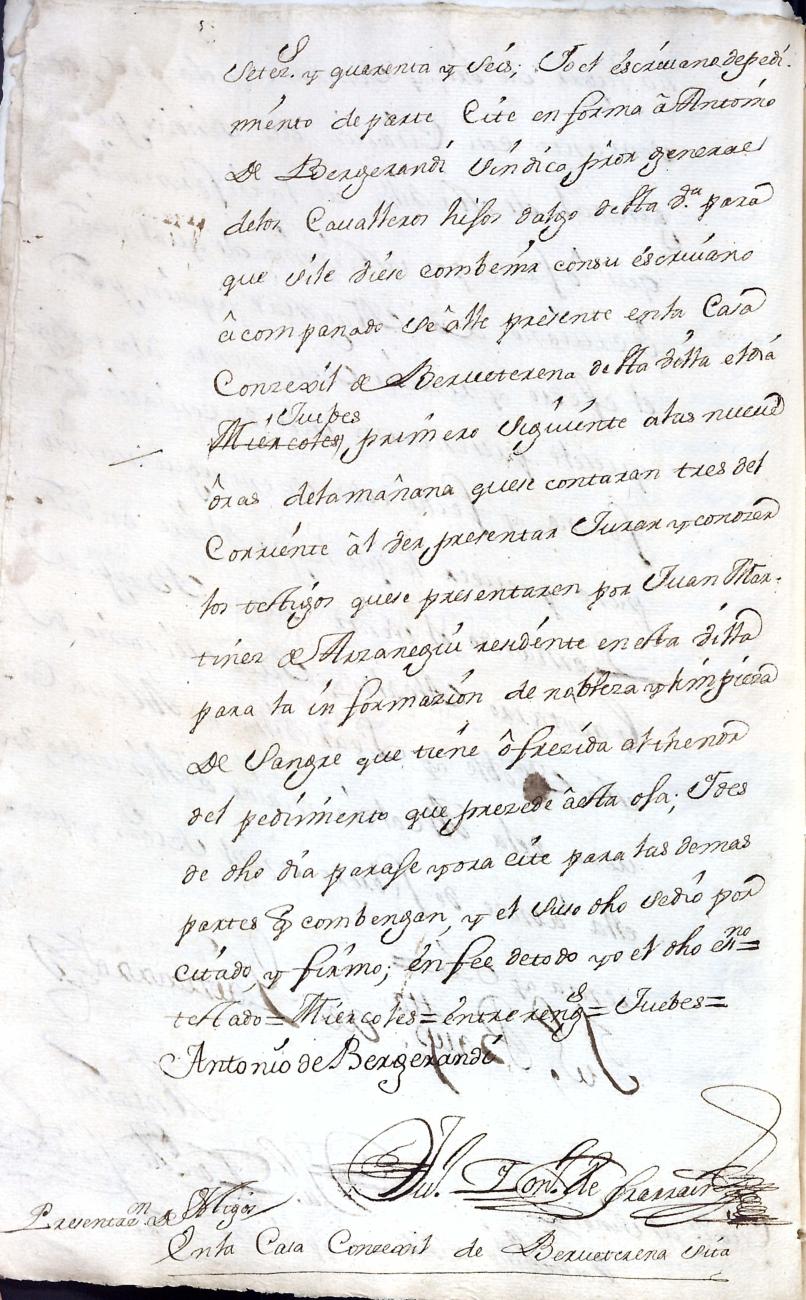 setezs. y quarenta y seis; Yo el escriuano de pedi-
miento de parte Cite en forma â Antonio
de Bergerandi sindico prior general
delos Cavalleros hijos dalgo desta d.ª para
que si le diese combenir consu escriuano
âcompanado se âlle presente en la Casa
Conzexil de Berueterena desta villa el dia
Juebes
Miércoles, primero siguiente alas nueve
ôras dela mañana quese contaran tres del
Corriente âl ver presentar Jurar y conozer
los testigos quese presentaren por Juan Mar-
tinez de Arzanegui residente en esta villa
para la informazion de nobleza y limpieza
de sangre que tiene ôfrezida al thenor
del pedimiento que prezede âesta oja; Ydes
de dho dia para se y ora cite para las demas
partes q combengan, y el suso dho sedio por
citado, y firmo; en fee de todo yo el dho esno=
testado= Miercoles= entre rengs= Juebes=
Antonio de Bergerandi
de
Presentazn de testigos
En la Casa Conzexil de Berueterena sita